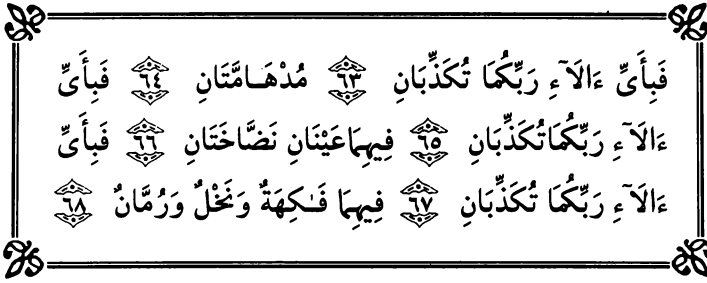 فَبِأَىِّ ءَالَآءِ رَبِّكُمَا تُكَذِّبَانِ ٦٣ مُدْهَآمَّتَانِ ٦٤ فَبِأَىِّ
ءَالَآءِ رَبِّكُمَا تُكَذِّبَانِ ٦٥ فِيهِمَا عَيْنَانِ نَضَّاخَتَانِ ٦٦ فَبِأَىِّ
ءَالَآءِ رَبِّكُمَا تُكَذِّبَانِ ٦٧ فِيهِمَا فَـٰكِهَةٌ وَنَخْلٌ وَرُمَّانٌ ٦٨